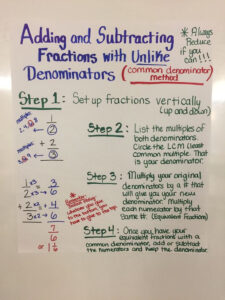 Adding and Subtracting
Fractions with Unlike
Denominators (common denominator)
method
* Always
Reduce if
you can!!!
Step 1: Set up fractions vertically
(up and down)
multiples
1
2
+ 2
3
Step 2: List the multiples of
both denominators.
Circle the LCM (least
common multiple. That
is your denominator.
Step 3: Multiply your original
denominators by # that
will give you your new
denominator. Multiply
each numerator by that
same #. (Equivalent Fractions)
1 x3 = 3
2 x3 → 6
+ 2 x2 = 4
3 x2 → 6
7
6
or 1 1/6
Step 4: Once you have your
equivalent fractions with a
common denominator, add or subtract
the numerators and keep the denominator.